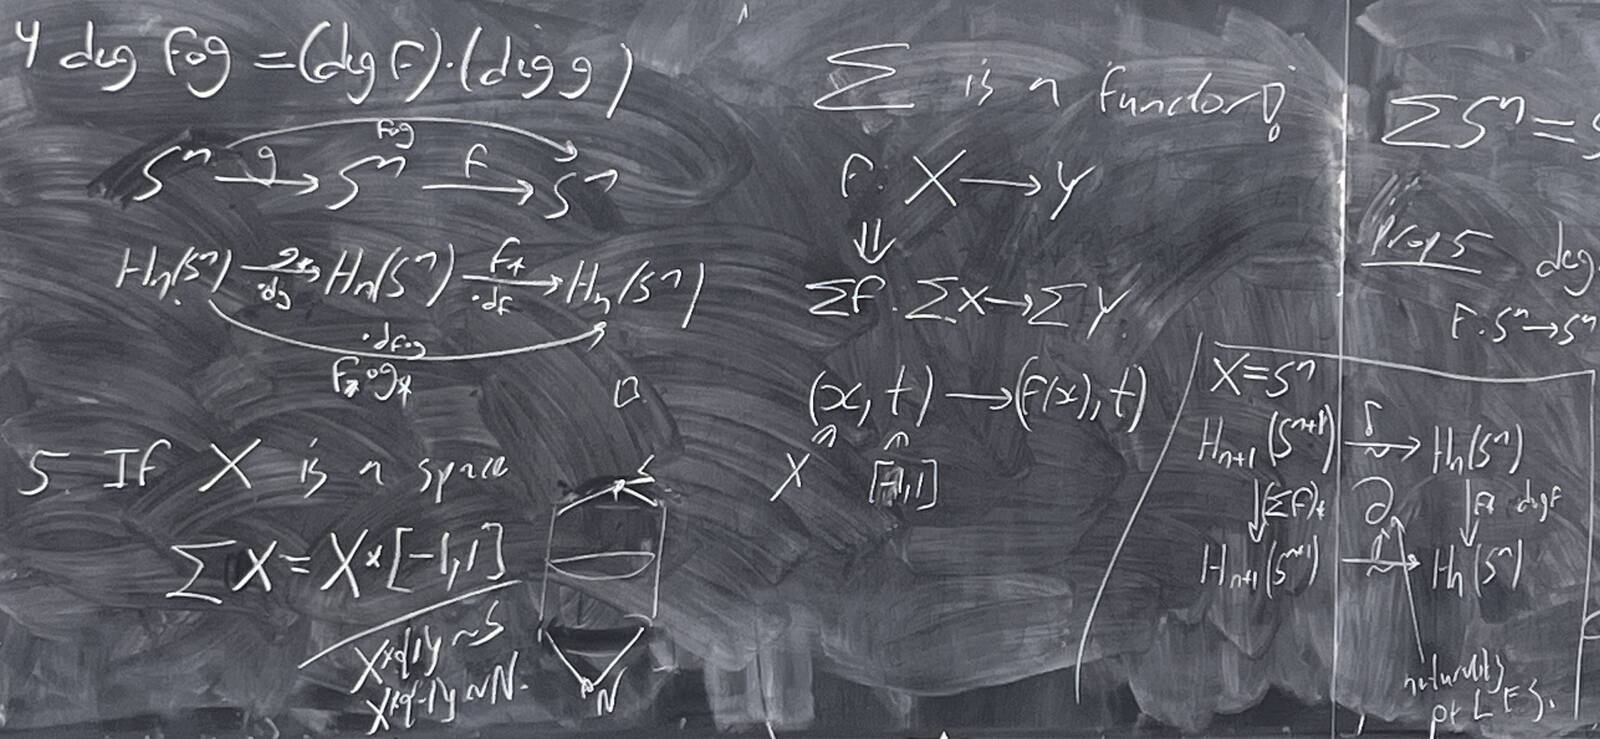 4 deg f∘g = (deg f)·(deg g)
f∘g
Sⁿ —g→ Sⁿ —f→ Sⁿ
Hₙ(Sⁿ) —g*→ Hₙ(Sⁿ) —f*→ Hₙ(Sⁿ)
·dg ·df
·df∘g
f*∘g*
□
5. If X is a space
ΣX = X×[-1,1]
X×{1}~S
X×{-1}~N.
S
N
Σ is a functor!
f: X → Y
⇓
Σf: ΣX → ΣY
(x, t) → (f(x), t)
X [-1,1]
ΣSⁿ = S
Prop 5 deg
f: Sⁿ → Sⁿ
X=Sⁿ
Hₙ₊₁(Sⁿ⁺¹) —∂~→ Hₙ(Sⁿ)
↓(Σf)* ↓f* deg f
Hₙ₊₁(Sⁿ⁺¹) —∂~→ Hₙ(Sⁿ)
naturality
of LES.